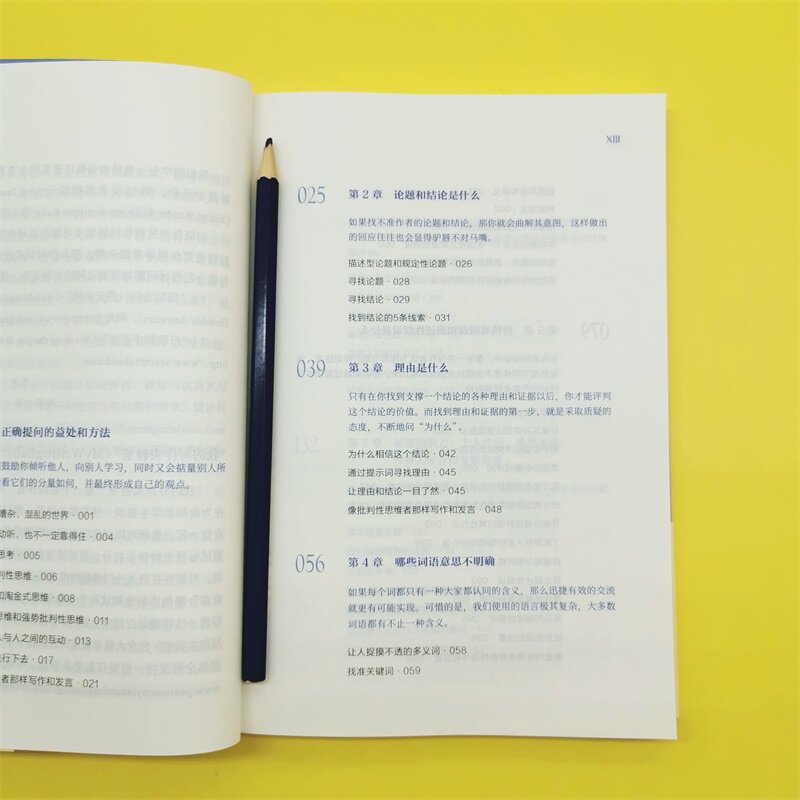 正确提问的益处和方法
鼓励你倾听他人，向别人学习，同时又会掂量别人所
看它们的分量如何，并最终形成自己的观点。
嘈杂、混乱的世界 · 001
动听，也不一定靠得住 · 004
思考 · 005
判性思维 · 006
和淘金式思维 · 008
思维和强势批判性思维 · 011
人与人之间的互动 · 013
进行下去 · 017
者那样写作和发言 · 021
XIII
025 第 2 章 论题和结论是什么
如果找不准作者的论题和结论，那你就会曲解其意图，这样做出
的回应往往也会显得驴唇不对马嘴。
描述型论题和规定性论题 · 026
寻找论题 · 028
寻找结论 · 029
找到结论的5条线索 · 031
039 第 3 章 理由是什么
只有在你找到支撑一个结论的各种理由和证据以后，你才能评判
这个结论的价值。而找到理由和证据的第一步，就是采取质疑的
态度，不断地问“为什么”。
为什么相信这个结论 · 042
通过提示词寻找理由 · 045
让理由和结论一目了然 · 045
像批判性思维者那样写作和发言 · 048
056 第 4 章 哪些词语意思不明确
如果每个词都只有一种大家都认同的含义，那么迅捷有效的交流
就更有可能实现。可惜的是，我们使用的语言极其复杂，大多数
词语都有不止一种含义。
让人捉摸不透的多义词 · 058
找准关键词 · 059